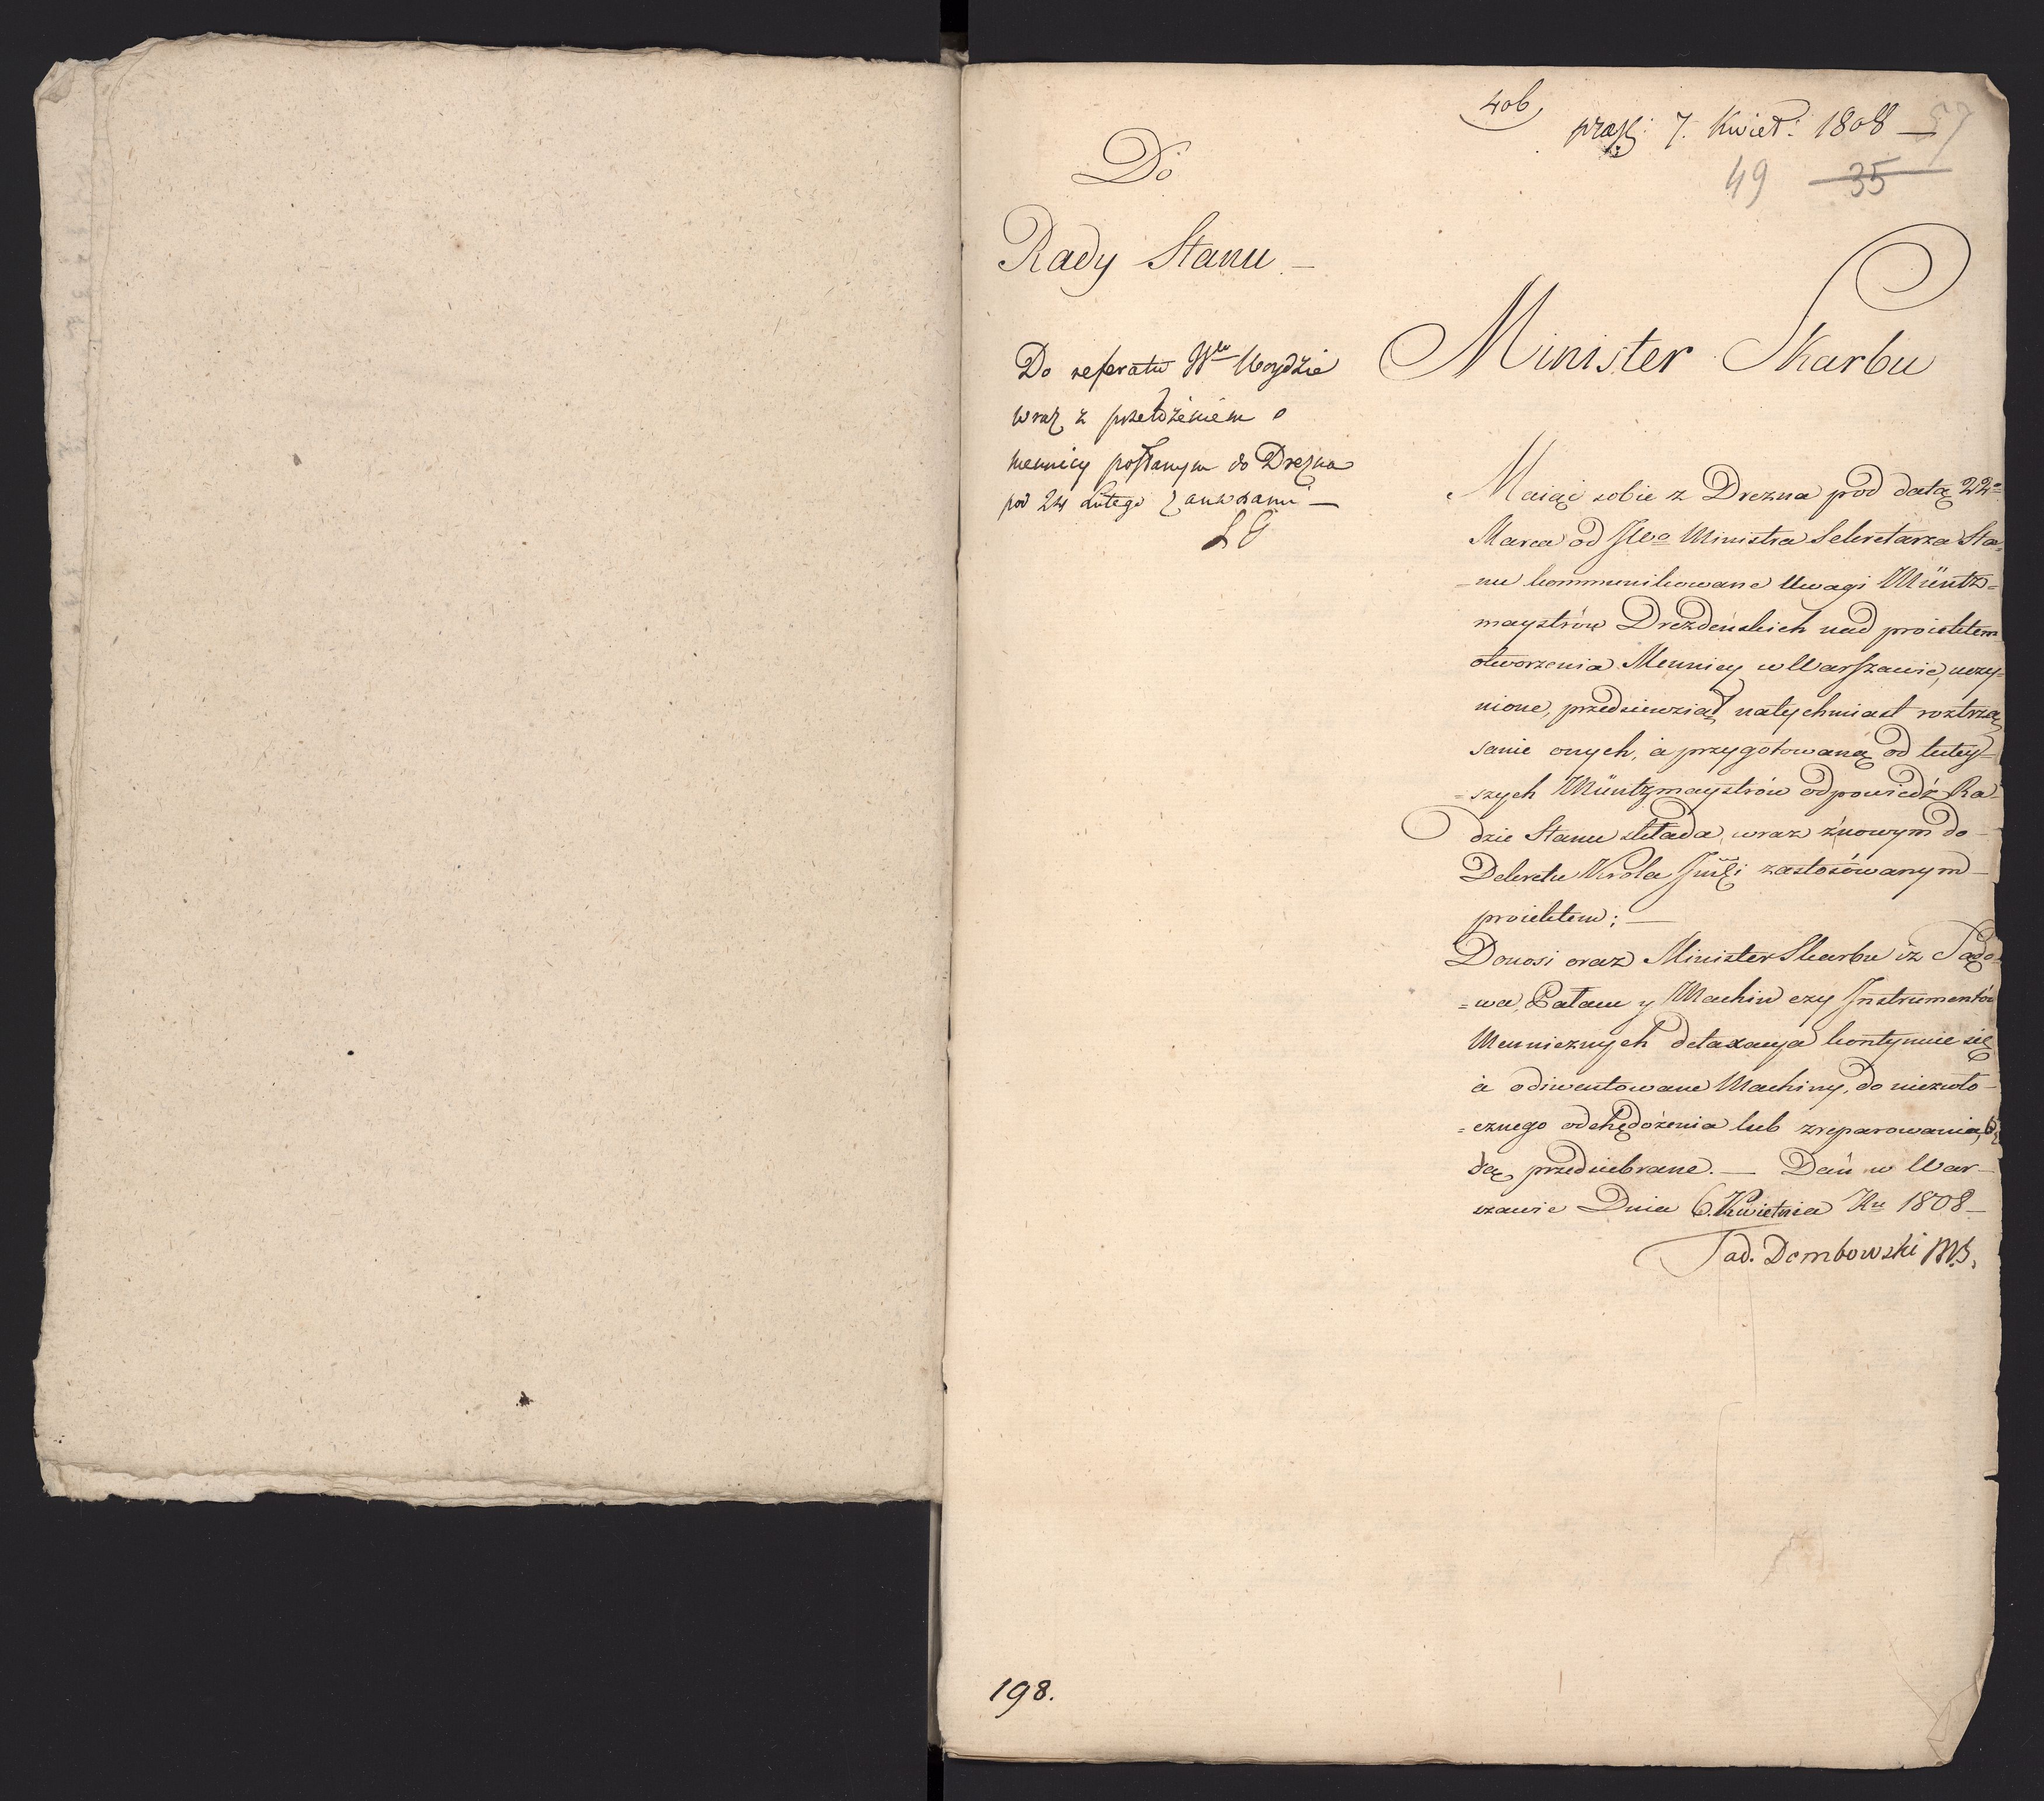 406
præs: 7. Kwiet: 1808 —
57
49 35
Do
Rady Stanu. —
Do referatu Wodzie
wraz z przełożeniem o
mennicy posłanym do Drezna
pod 24 Lutego z anexami —
Minister Skarbu
Maiąc sobie z Drezna pod datą 22º
Marca od JWo Ministra Sekretarza Sta=
=nu kommunikowane Uwagi Müntz=
maystrów Drezdeńskich nad proiektem
otworzenia Mennicy w Warszawie, uczy=
nione, przedsiewziął natychmiast roztrzą
sanie onych, a przygotowaną od tutey=
=szych Müntzmaystrów odpowiedź Ra=
dzie Stanu składa, wraz z nowym do
Dekretu Króla Jmći zastosówanym
proiektem; —
Donosi oraz Minister Skarbu iż Sądo=
=wa, Pałacu y Machin czy Instrumentów
Mennicznych detaxacya kontynuie się,
a odinwentowane Machiny, do niezwło=
=cznego odchędożenia lub zreparowania, bę
dą przedsiebrane. — Dań w War=
szawie Dnia 6. Kwietnia Ru 1808 —
Tad. Dembowski MS.
198.